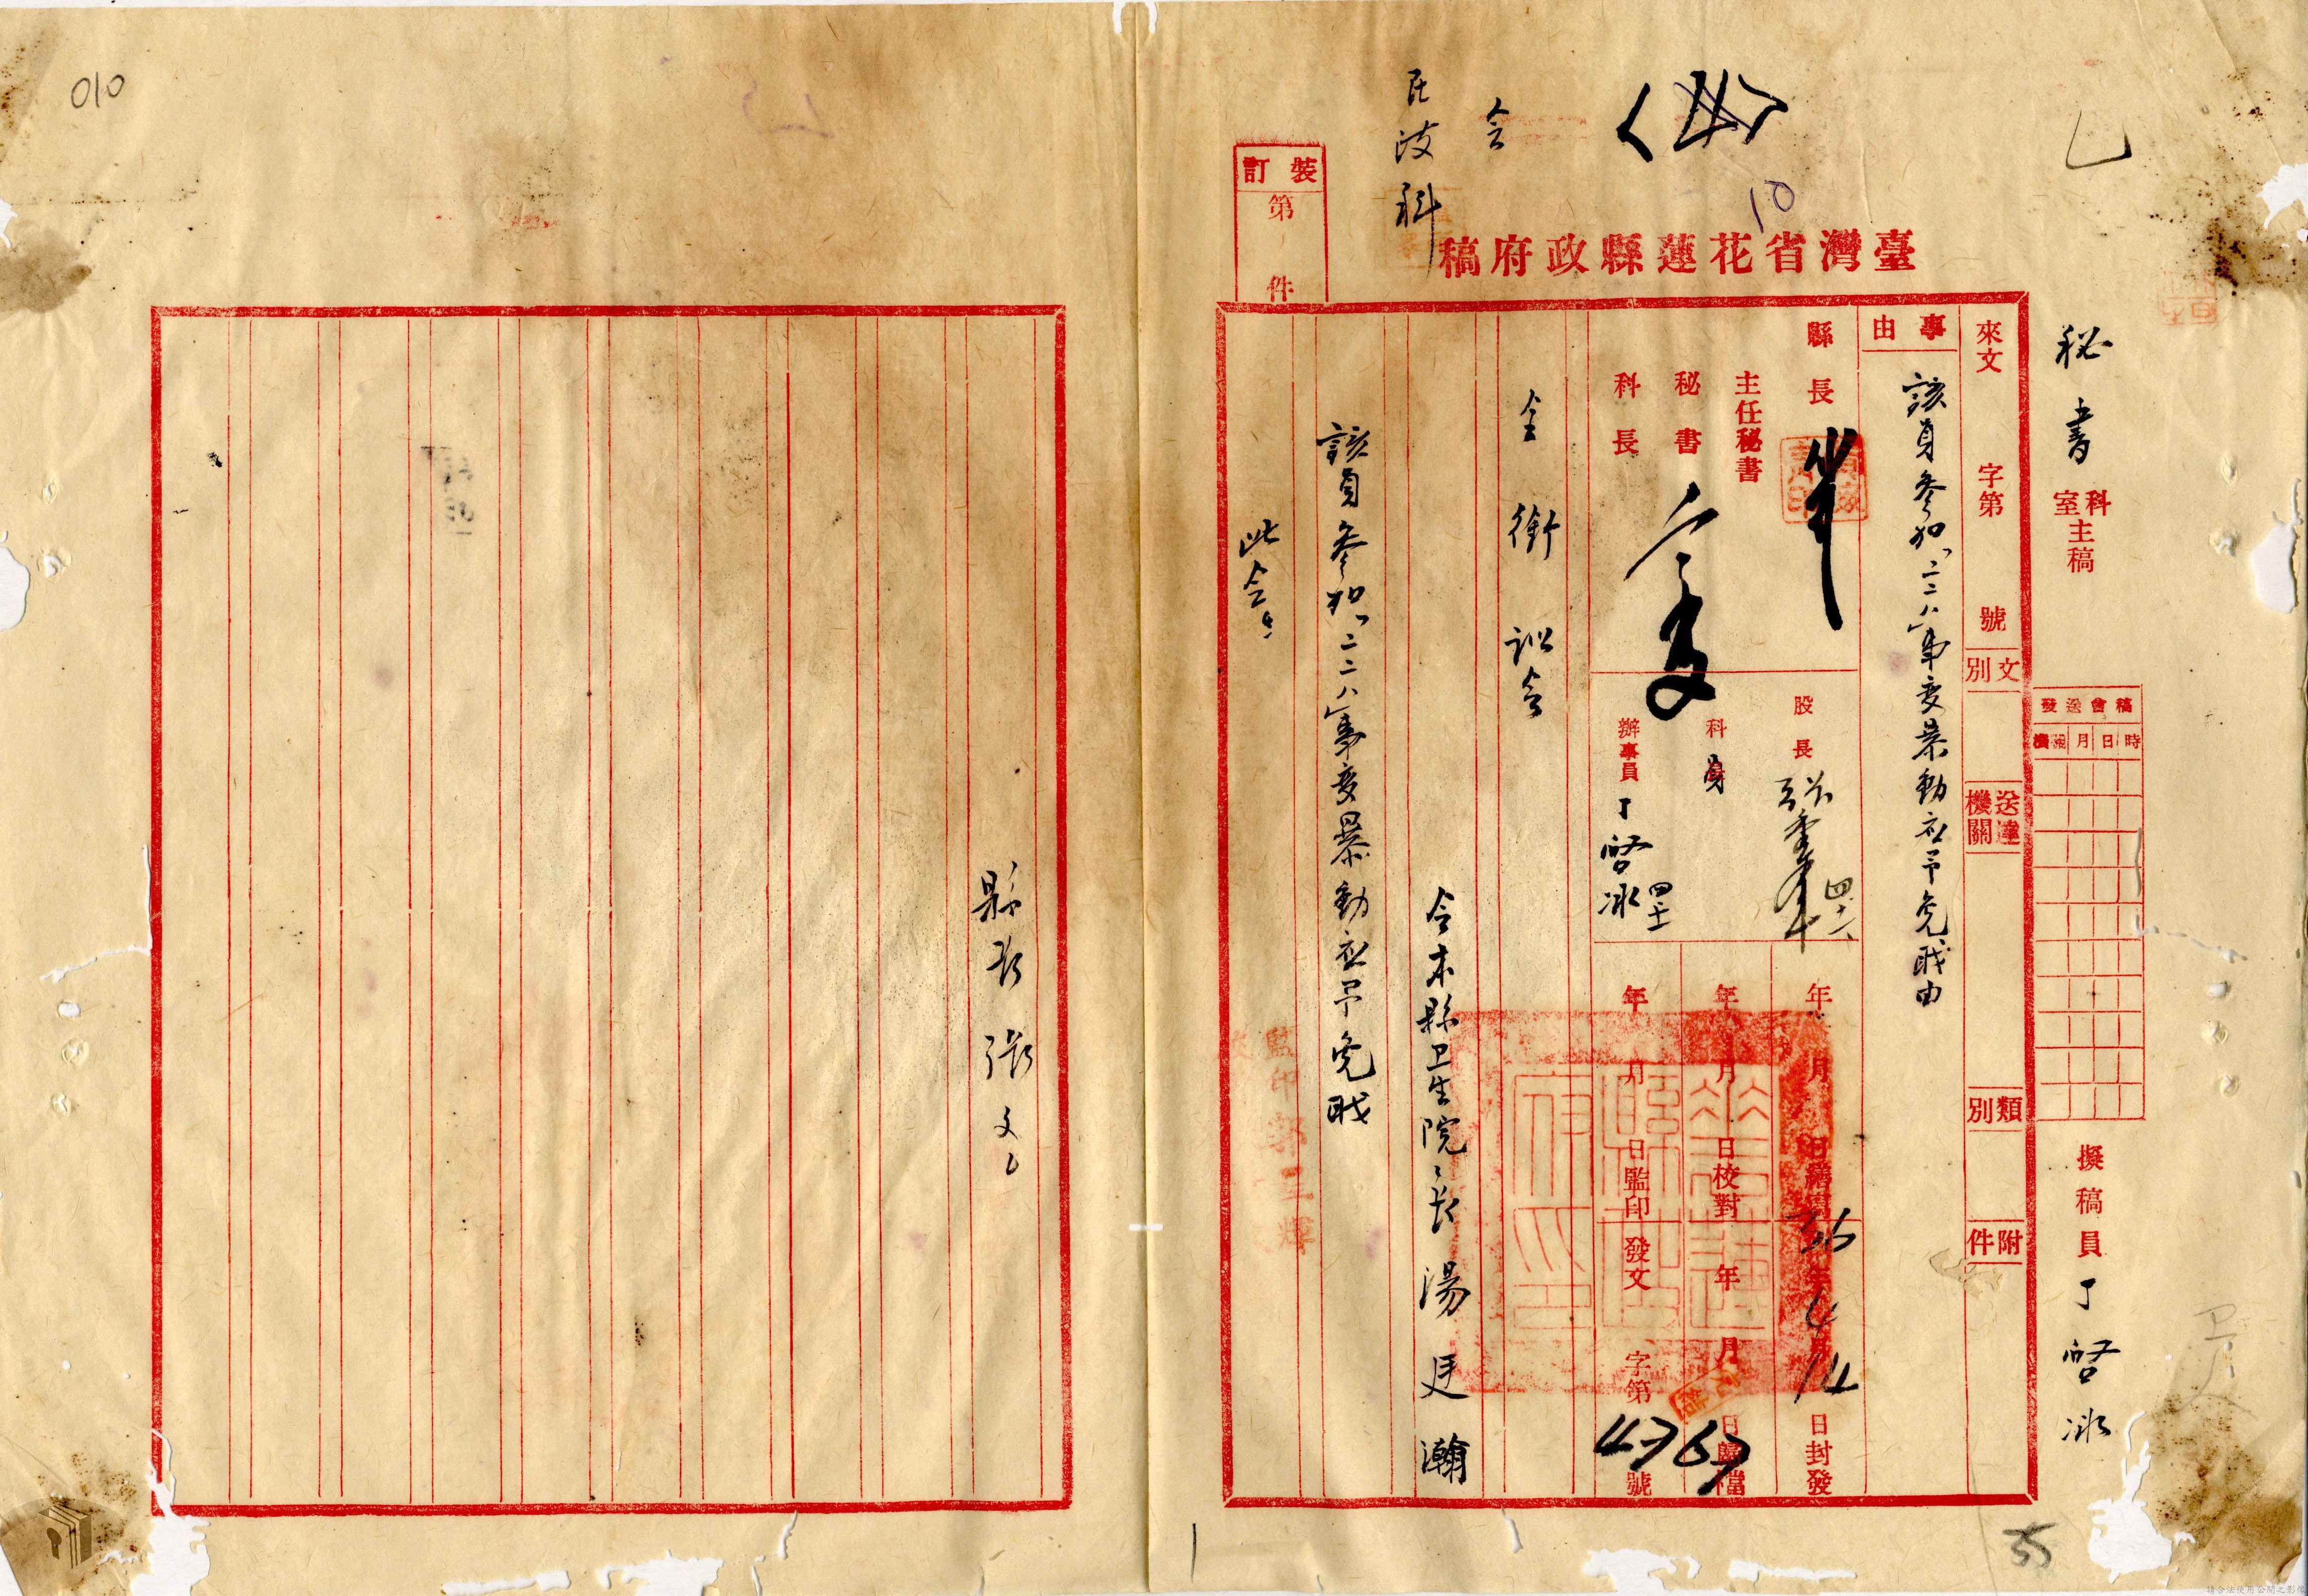 010
臺灣省花蓮縣政府稿
10
會
民政科
裝訂
第 件
秘書
科室主稿
稿會送發
時日月
擬稿員 丁啓冰
來文 字第 號
文別
送達機關
類別
附件
事由
該員參加「二二八」事变暴動应予免戝由
縣長
主任秘書
秘書
科長
股長
科員
辦事員 丁啓冰
年 月 日繕寫
年 月 日校對
年 月 日監印
36年4月14日封發
年 月 日歸檔
發文 字第4767號
全銜訓令
令本縣卫生院長湯廷瀚
該員參加「二二八」事变暴動应予免戝
此令
監印
縣長 張文
35
請合法使用公開之影像